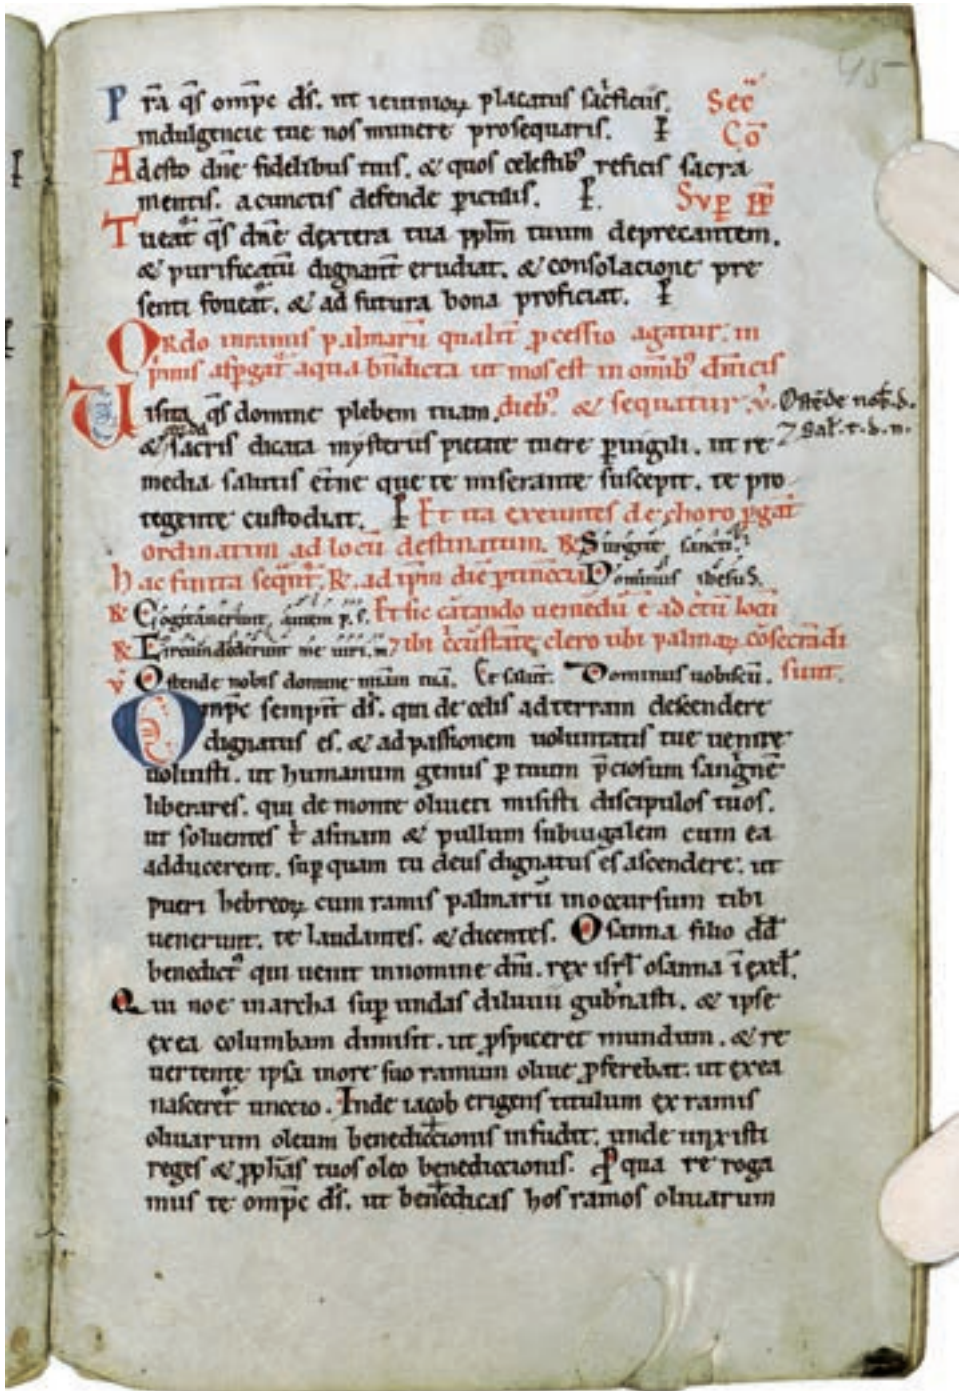 45
Pr̄a q̄s omp̄c d̄s. ut ieiunioꝝ placatus sac̓ficiis. Sec̄
indulgencie tue nos munere prosequaris. P Co̅
Adesto dn̄e fidelibus tuis. & quos celestibꝰ reficis sacra
mentis. acunctis defende ꝑiculis. P. Suꝑ pp̄
Tueat᷑ q̄s dn̄e dextera tua ppl̄m tuum deprecantem.
& purificatū dignant᷑ erudiat. & consolacione pre
senti foueat᷑. & ad futura bona proficiat. P
Ordo inramis palmarū qualit᷑ ꝓcessio agatur. in
p̓mis asꝑgat᷑ aqua bn̄dicta ut mos est in om̄ibꝰ dn̄icis
Uisita q̄s domine plebem tuam. diebꝰ. & sequatur. v̓. Ostēde nob̄. d.
& sacris dicata mysteriis pietate tuere ꝑuigili. ut re ⁊ Sal̄. t. d. n.
media salutis et̄ne que te miserante suscepit. te pro
tegente custodiat. P Et ita exeuntes de choro ꝑgāt
ordinatim ad locū destinatum. ℞ Surgite sancti.
hac finita seqūt᷑. ℞. ad ip̄m diē ꝑtinēcia Dominus ihesuS.
℞ Cogitauerunt autem p. s. Et sic cātando ueniēdū ē ad c̓tū locū
℞ Circumdederunt me uiri. m ⁊ ibi c̓cūstāte clero ubi palmaꝝ cōsecrādi
v̓ Ostende nobis domine miam tuā. Et salut̄. Dominus uobiscū. sunt.
Omp̄c sempit̄ d̄s. qui de celis adterram descendere
dignatus es. & ad passionem uoluntatis tue uenire
uoluisti. ut humanum genus ꝑ tuum p̄ciosum sang̓nē
liberares. qui de monte oliueti misisti discipulos tuos.
ut soluentes t̓ asinam & pullum subiugalem cum ea
adducerent. suꝑ quam tu deus dignatus es ascendere. ut
pueri hebreoꝝ cum ramis palmarū inoccursum tibi
uenerunt. te laudantes. & dicentes. Osanna filio dd̄
benedictꝰ qui uenit innomine dn̄i. rex isrl̄ osanna ī excl̄.
Qui noe inarcha suꝑ undas diluuii gub̄nasti. & ipse
exea columbam dimisit. ut ꝓspiceret mundum. & re
uertente ipsa more suo ramum oliue ꝓferebat. ut exea
nasceret᷑ unccio. Inde iacob erigens titulum exramis
oliuarum oleum benediccionis infudit. unde unxisti
reges & pph̄as tuos oleo benediccionis. Ꝓ qua re roga
mus te omp̄c d̄s. ut benedicas hos ramos oliuarum